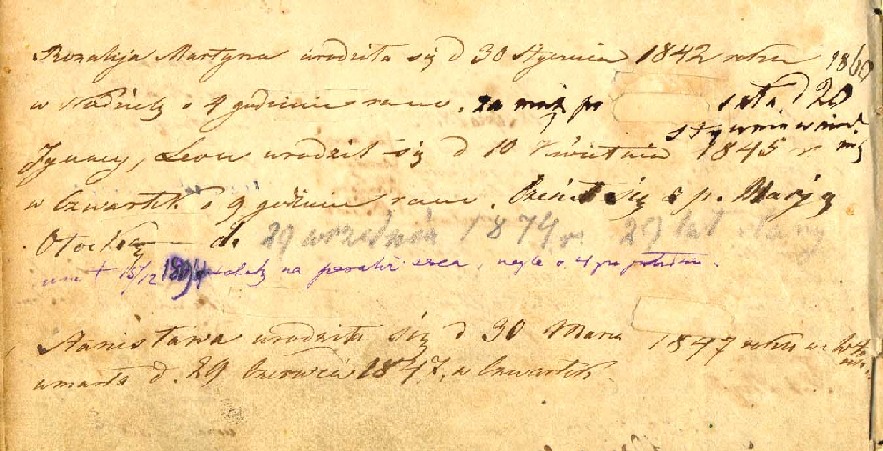 Rozalija Martyna urodziła się d 30 Stycznia 1842 roku
w Niedzielę o 4 godzinie rano. za mąż po szła d 20 1860
Stycznia w niedzielę
Ignacy, Leon urodził się d 10 Kwietnia 1845 r
w Czwartek o 9 godzinie rano. Ożenił się z p. Marją
Otocką d. 29 września 1874 r. 29 lat stary
um † 15/2 na paraliż serca, nagle o 4 po południu.
Stanisława urodziła się d 30 Marca 1847 roku we
umarła d. 29 Czerwca 1847. w Czwartek.